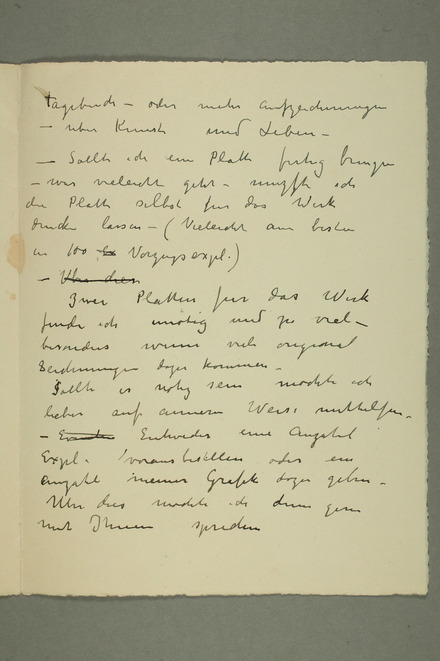 Tagebuch – oder mehr Aufzeichnungen
– über Kunst und Leben –
– Sollte ich eine Platte fertig bringen
– was vieleicht geht – muszte ich
die Platte selbst für das Werk
drucken lassen – (Vieleicht am besten
in 100 Vorzugsexpl.)
– Über dies
Zwei Platten für das Werk
finde ich unötig und zu viel –
besonders wenn viele original
Zeichnungen dazu kommen –
Sollte es nötig sein möchte ich
lieber auf anneren Weise mithelfen –
– Entweder eine Anzahl
Expl. vorausbestellen oder ein
Anzahl meiner Grafik dazu geben –
Über dies möchte ich dann gern
mit Ihnen sprechen